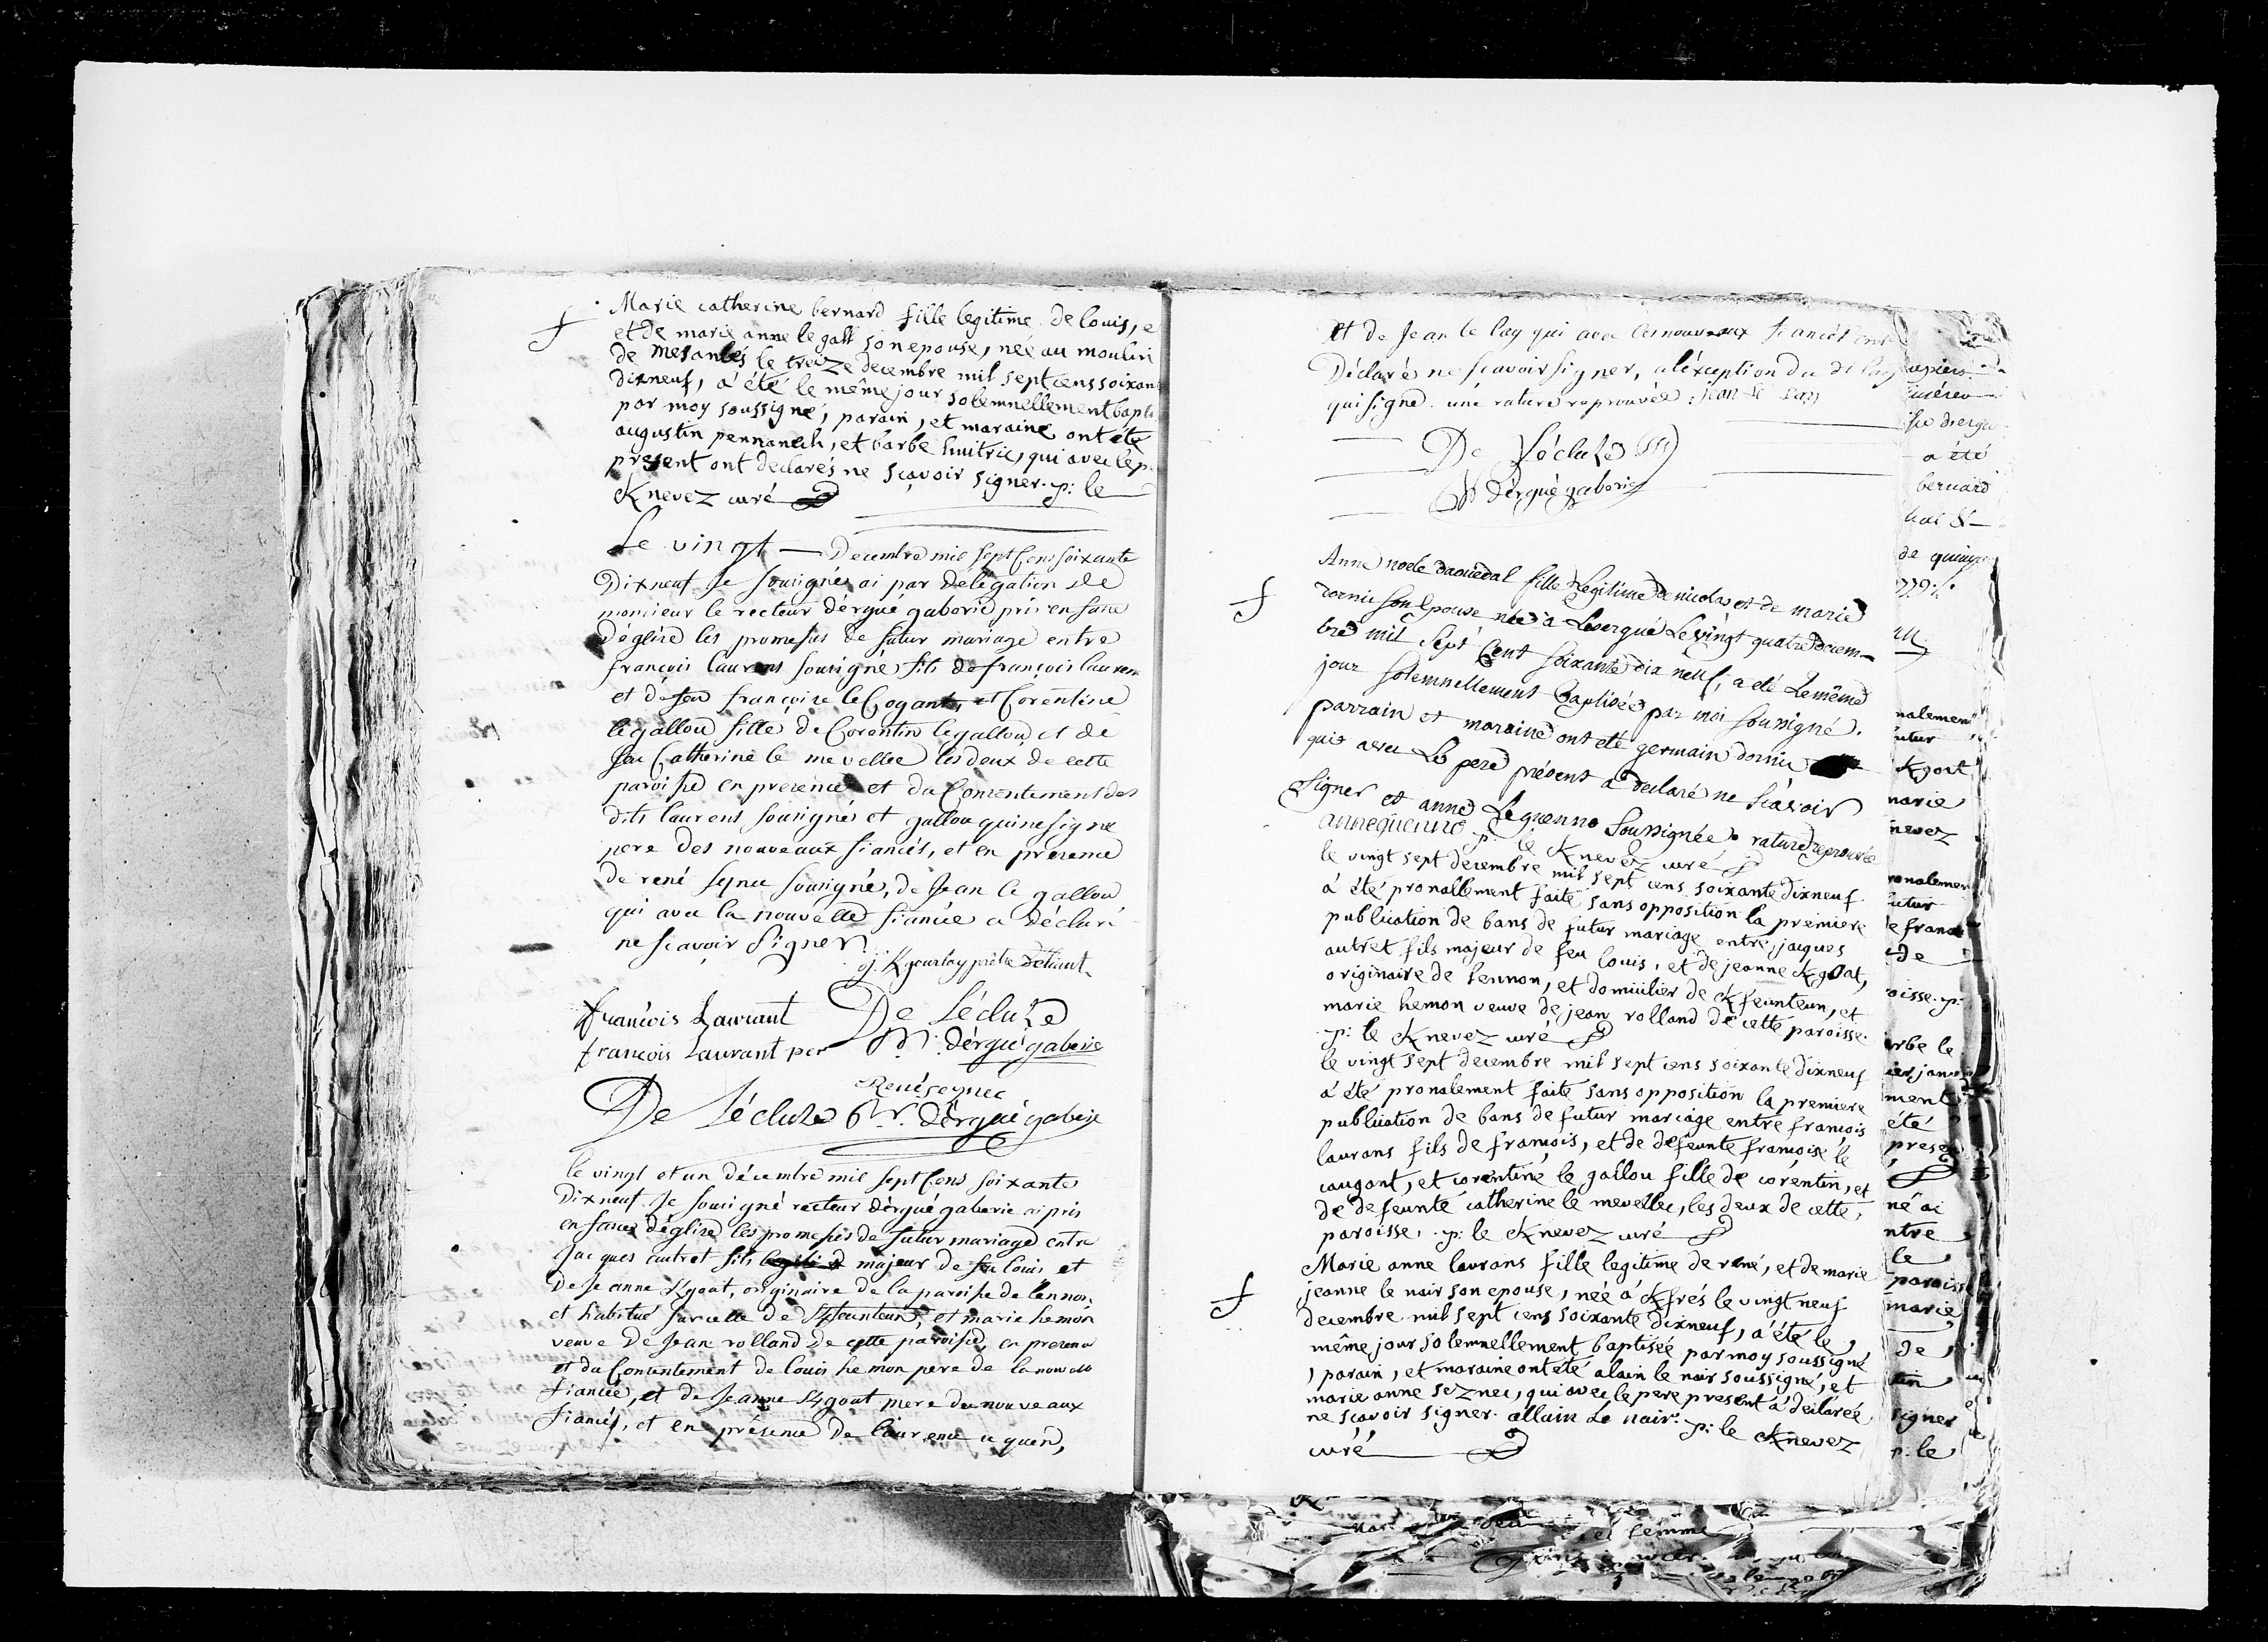 Marie catherine bernard fille legitime de louis, e
et de marie anne le gall son epouse, née au moulin
de mesanlés le treize decembre mil sept cens soixan
dixneuf, a été le même jour solemnellement bapti
par moy soussigné, parain, et maraine ont été
augustin pennanech, et barbe huitric, qui avec le p.
present ont declarés ne sçavoir signer. p: le
Knevez curé
Le vingt — Decembre mil sept Cens soixante
Dixneuf Je sousigné ai par délégation de
monsieur le recteur d'ergué gaberic pris en face
d'eglise les promesses de futur mariage entre
françois laurens sousigné fils de françois lauren
et de feu françoise le Cogant, et Corentine
le gallou fille de Corentin le gallou et de
feu Catherine le mevellec les deux de cette
paroisse en presence et du Consentement des
dits laurens sousignés et gallou qui ne signe
pere des nouveaux fiancés, et en presence
de rené seznec sousigné, de Jean le gallou
qui avec la nouvelle fiancée a déclaré
ne scavoir signer
j. Kgourlay prêtre
françois Laurant De Lécluze
françois Laurant per Rr. d'ergué gaberic
René seznec
De Lécluze Rr. d'ergué gaberic
le vingt et un décembre mil sept Cens soixante
Dixneuf Je sousigné recteur d'ergué gaberic ai pris
en face d'église les promesses de futur mariage entre
Jacques autret fils majeur de feu louis et
de Jeanne Kgoat, originaire de la paroisse de lennon
et habitué sur celle de Kfeunteun, et marie hemon
veuve De Jean rolland de cette paroisse, en presence
et du Consentement de louis hemon pere de la nouvelle
fiancée, et de Jeanne Kgoat mere du nouveaux
fiancés, et en présence De laurence
et de Jean le lay qui avec les nouveaux fiancés ont
Déclaré ne scavoir signer, a l'éxception du dt lay
qui signe. une rature reprouvée : jean le lay
De Lécluze
Rr d'ergué gaberic
Anne noele daouedal fille Legitime de nicolas et de marie
dornic son Epouse née à Lesergué Le vingt quatre decem-
bre mil Sept Cent soixante dix neuf, a été Le même
jour solemnellement Baptisée par moi soussigné.
parrain et maraine ont été germain dornic
qui avec Le pere présent a declaré ne scavoir
Signer et anne Leguenno soussignée rature reprouvée
anneguenno p: le Knevez curé
le vingt sept decembre mil sept cens soixante dixneuf
à été pronallement faite sans opposition la premiere
publication de bans de futur mariage entre, jacques
autret fils majeur de feu louis, et de jeanne Kgoat,
originaire de lennon, et domicilier de Kfeunteun, et
marie hemon veuve de jean rolland de cette paroisse.
p: le Knevez curé
le vingt sept decembre mil sept cens soixante dixneuf
à été pronalement faite sans opposition la premiere
publication de bans de futur mariage entre francois
laurans fils de francois, et de defeunte francoise le
caugant, et corentine le gallou fille de corentin, et
de defeunte catherine le mevellec, les deux de cette,
paroisse, p: le Knevez curé
Marie anne laurans fille legitime de rené, et de marie
jeanne le nair son epouse, née à Kfrés le vingt neuf
decembre mil sept cens soixante dixneuf, à été le,
même jour solemnellement baptisée par moy soussigné
, parain, et maraine ont été alain le nair soussigné, et
marie anne seznec, qui avec le pere present à declarée
ne scavoir signer. allain Le nair: p: le Knevez
curé
a été
bernard
de
nalement
futur
Kgoat
marie
nevez
futur
de
oisse. p:
ment
été
né ai
ntre
le
paroiss
marie,
de
signer
p: le